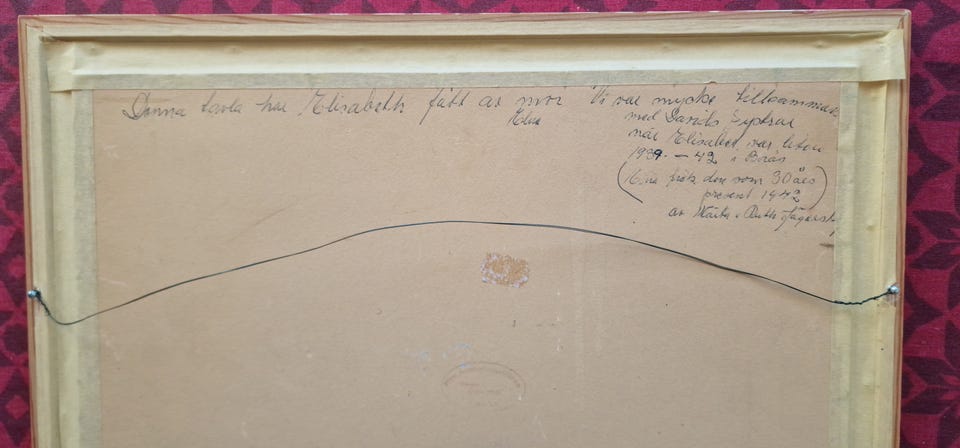 Denna tavla har Elisabeth fått av mor Vi var mycke tillsammans
Elsa
med Davids
när Elisabet var liten
1939 – 42 i Borås
( fick den som 30 års
present 1942)
av Märta o Ruth